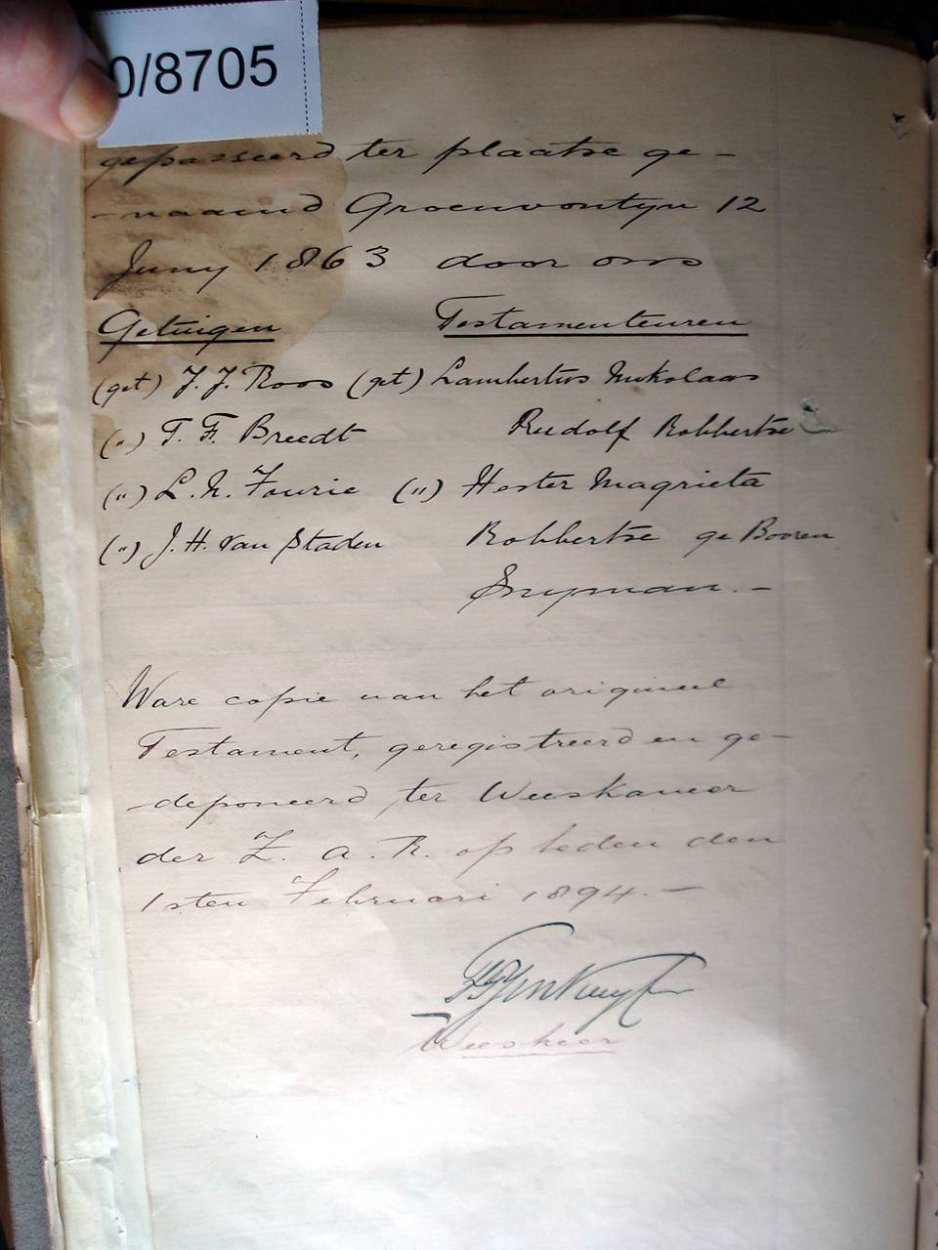 0/8705
gepasseerd ter plaatse ge-
-naamd Groenvontyn 12
Juny 1863 door ons
Getuigen Testamenteuren
(get) J. J. Roos (get) Lambertus Nikolaas
(") T. F. Breedt Rudolf Robbertse
(") L. N. Fourie (") Hester Magrieta
(") J. H. van Staden Robbertse ge Booren
Snyman. -
Ware copie van het origineel
Testament, geregistreerd en ge-
-deponeerd ter Weeskamer
der Z. A. R. op heden den
1sten Februari 1894. -
Weesheer